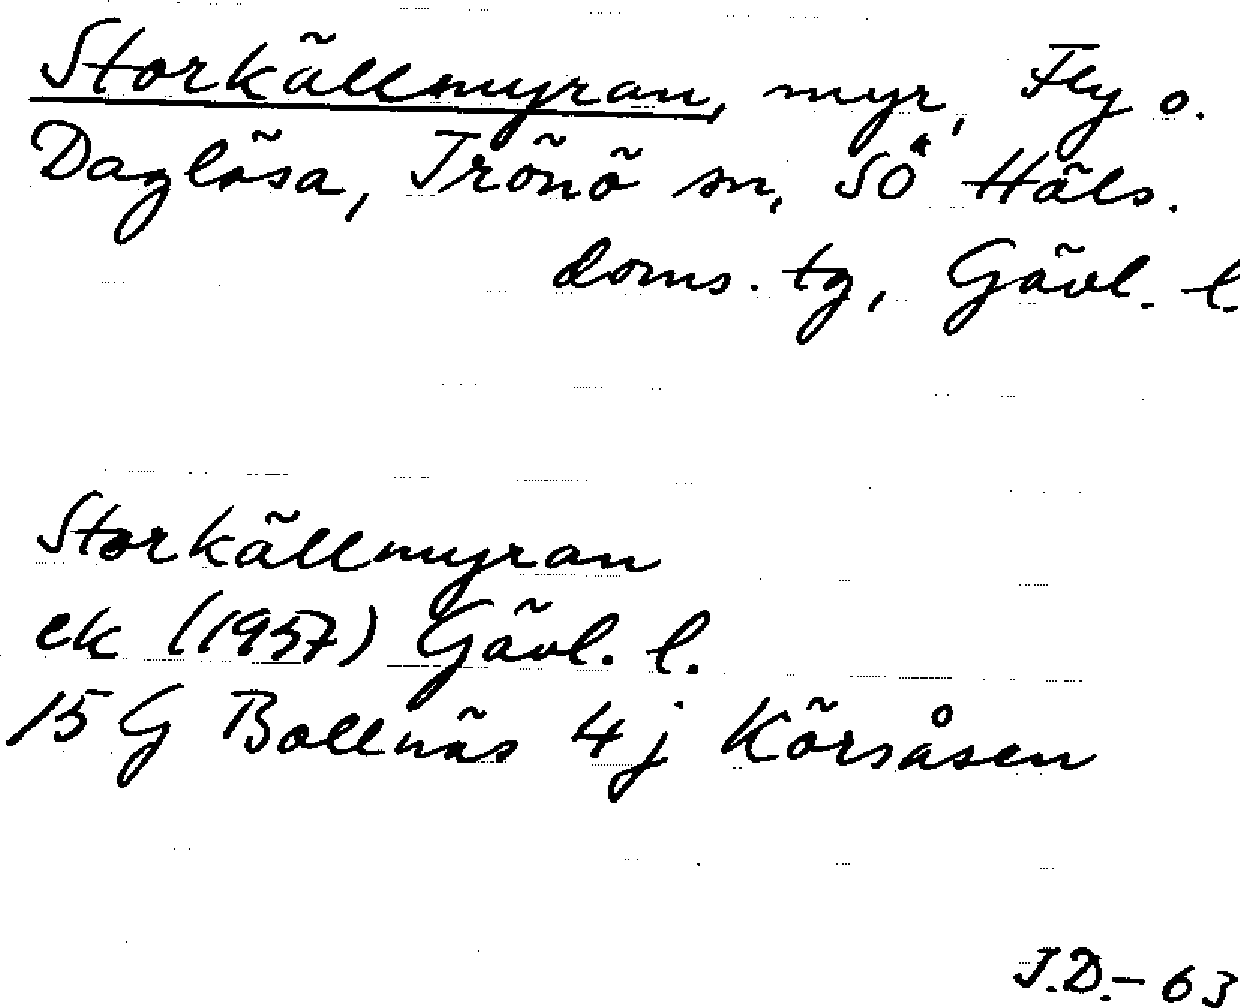 Storkällmyran, myr, Fly o.
Daglösa, Trönö sn, SÖ Häls.
doms. tg, Gävl. l.
Storkällmyran
ek (1957) Gävl. l.
15 G Bollnäs 4 j Körsåsen
J.D. - 63